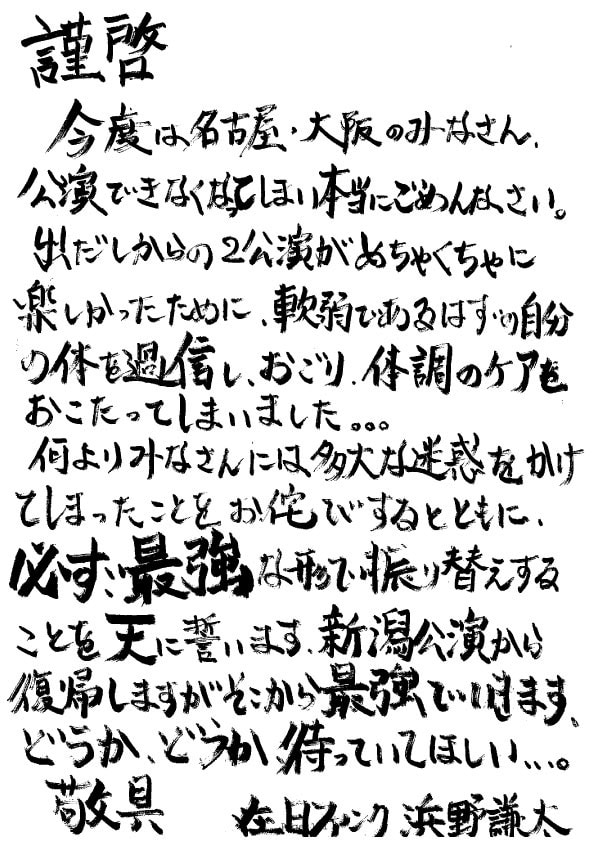 謹啓
今度は名古屋・大阪のみなさん、
公演できなくなってしまい本当にごめんなさい。
出だしからの2公演がめちゃくちゃに
楽しかったために、軟弱であるはずの自分
の体を過信し、おごり、体調のケアを
おこたってしまいました。。。
何よりみなさんには多大な迷惑をかけ
てしまったことをお侘びするとともに、
必ず、最強な形で振り替えする
ことを天に誓います、新潟公演から
復帰しますがそこから最強でいきます、
どうか、どうか、待っていてほしい...。
敬具 在日ファンク 浜野謙太